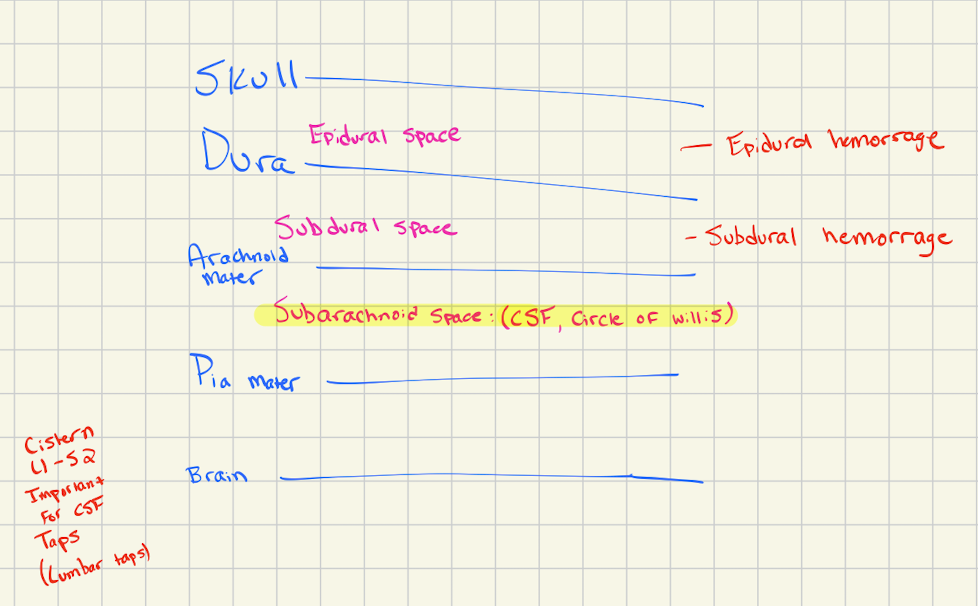 Skull
Epidural space
Dura
— Epidural hemorrage
Subdural space
- Subdural hemorrage
Arachnoid
mater
Subarachnoid space: (CSF, Circle of Willis)
Pia mater
Brain
Cistern
L1-S2
Important
For CSF
Taps
(Lumbar taps)